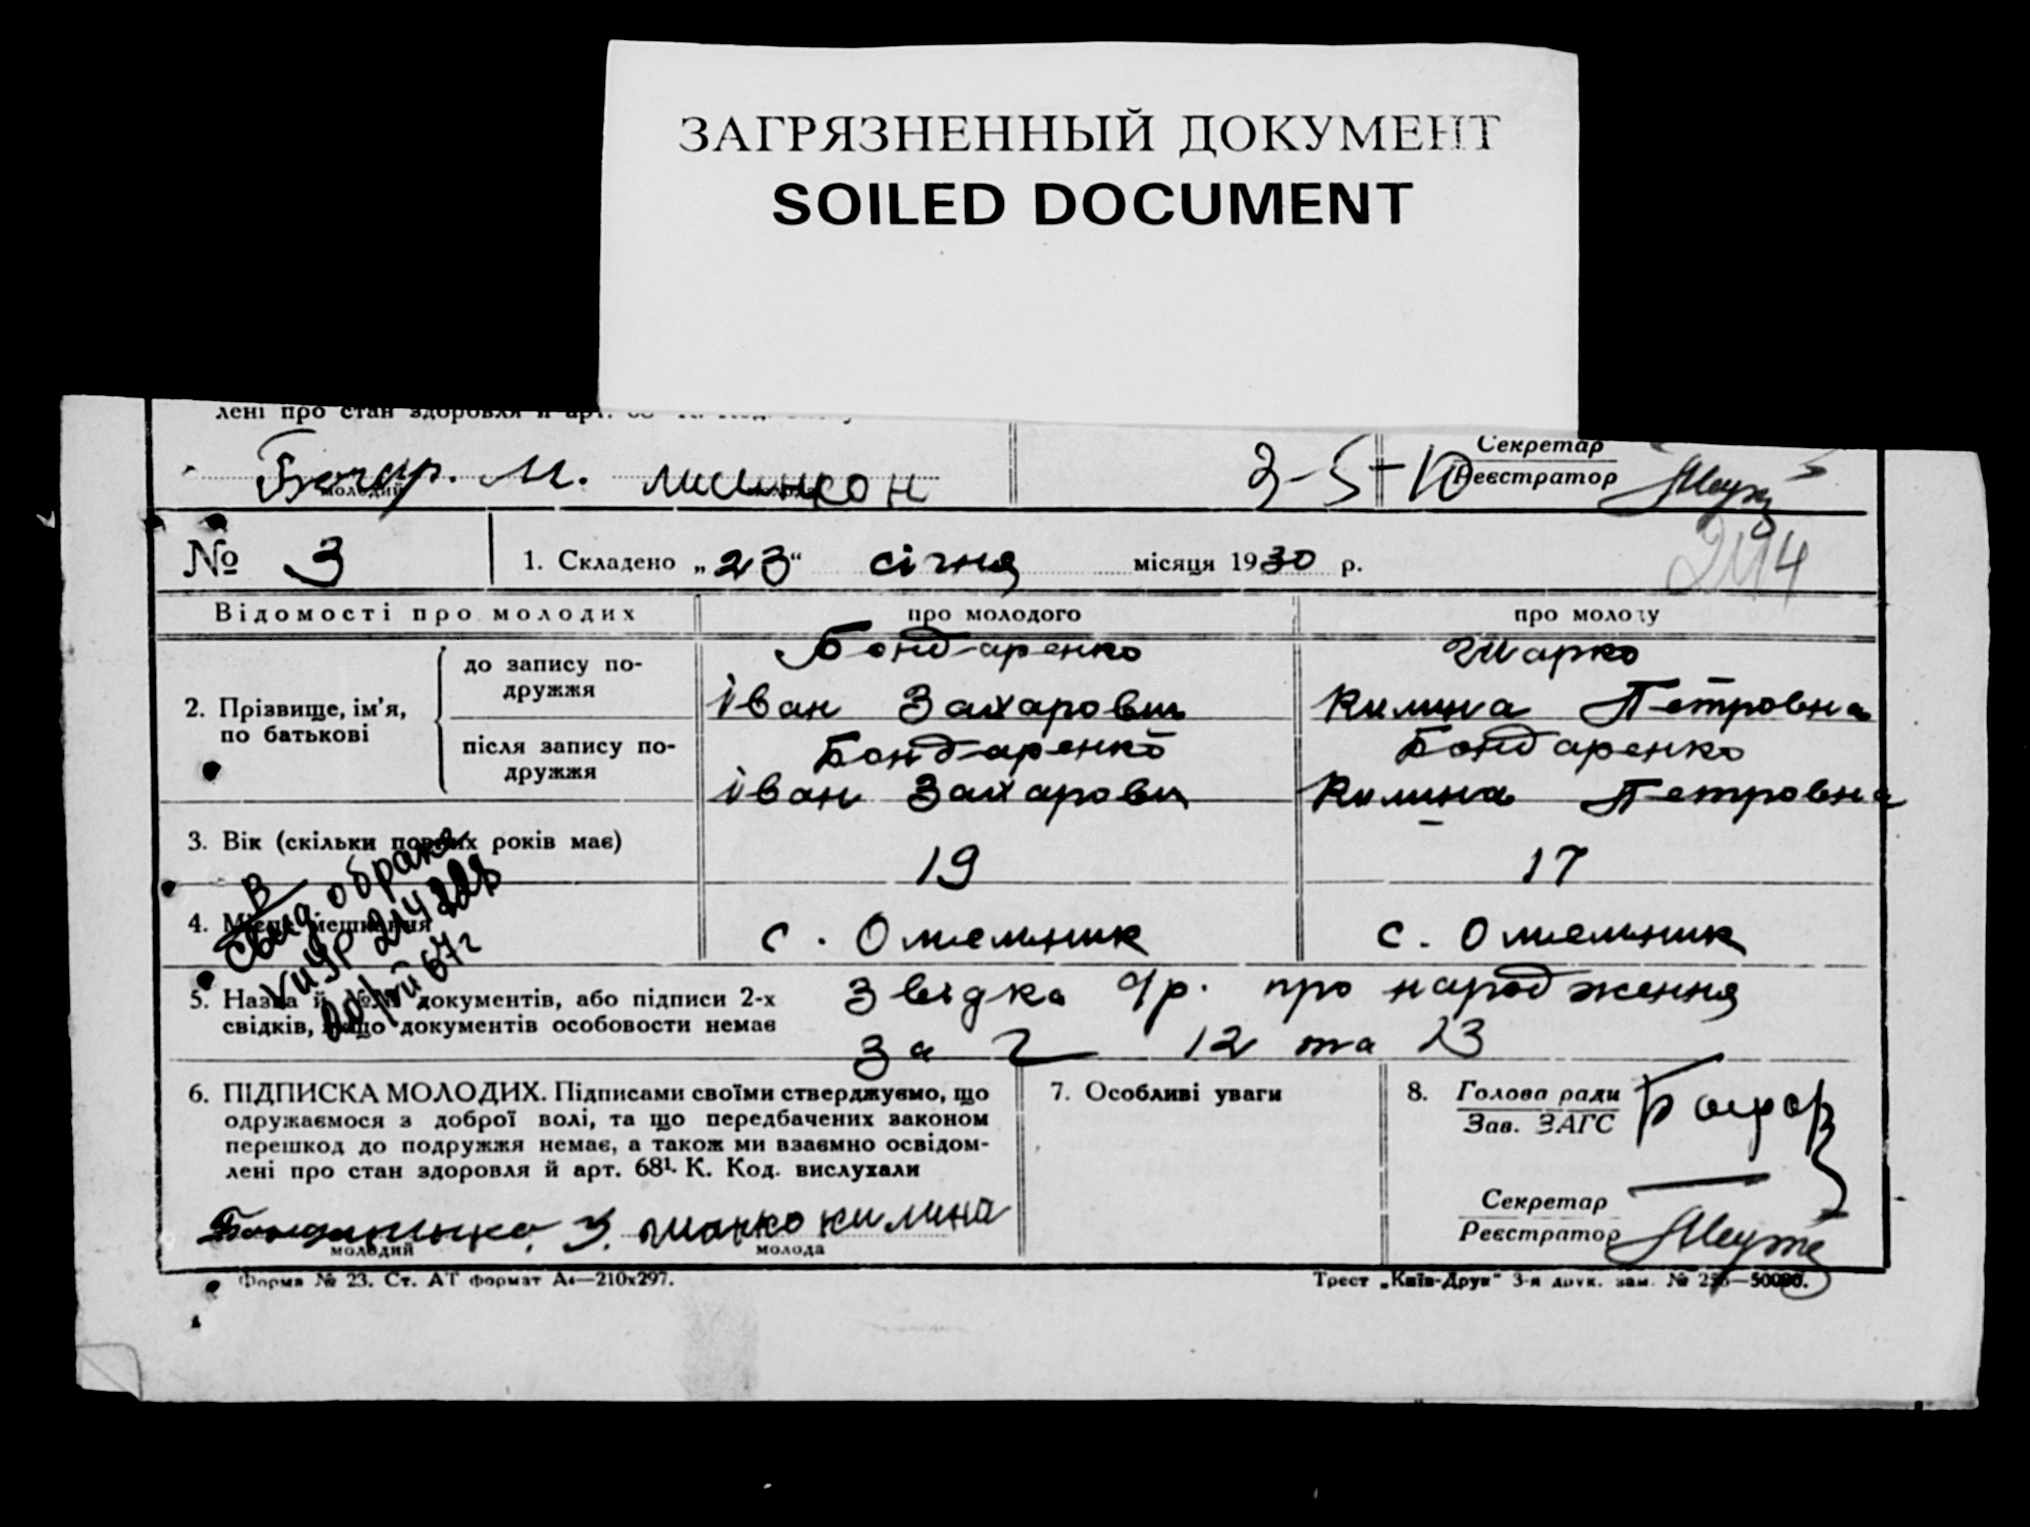 ЗАГРЯЗНЕННЫЙ ДОКУМЕНТ
SOILED DOCUMENT
лені про стан здоровля й арт.
Секретар
Реєстратор
молодий
№ 3
1. Складено „23“ січня місяця 1930 р.
244
Відомості про молодих
про молодого
про молоду
2. Прізвище, ім’я, по батькові
до запису по-
дружжя
Бондаренко
Іван Захарович
Шарко
Килина Петровна
після запису по-
дружжя
Бондаренко
Іван Захарови
Бондаренко
Килина Петровна
3. Вік (скільки повних років має)
19
17
4. Місце мешкання
с. Омельник
с. Омельник
5. Назва й №№ документів, або підписи 2-х
свідків, якщо документів особовости немає
Звідка про народження
за 12 та 23
В
Свид о браке
67г
6. ПІДПИСКА МОЛОДИХ. Підписами своїми стверджуємо, що
одружаємося з доброї волі, та що передбачених законом
перешкод до подружжя немає, а також ми взаємно освідом-
лені про стан здоровля й арт. 68¹· К. Код. вислухали
шарко килина
молодий
молода
7. Особливі уваги
8. Голова ради
Зав. ЗАГС
Секретар
Реєстратор
Форма № 23. Ст. АТ формат А4—210х297.
Трест „Київ-Друк“ 3-я друк. зам. №